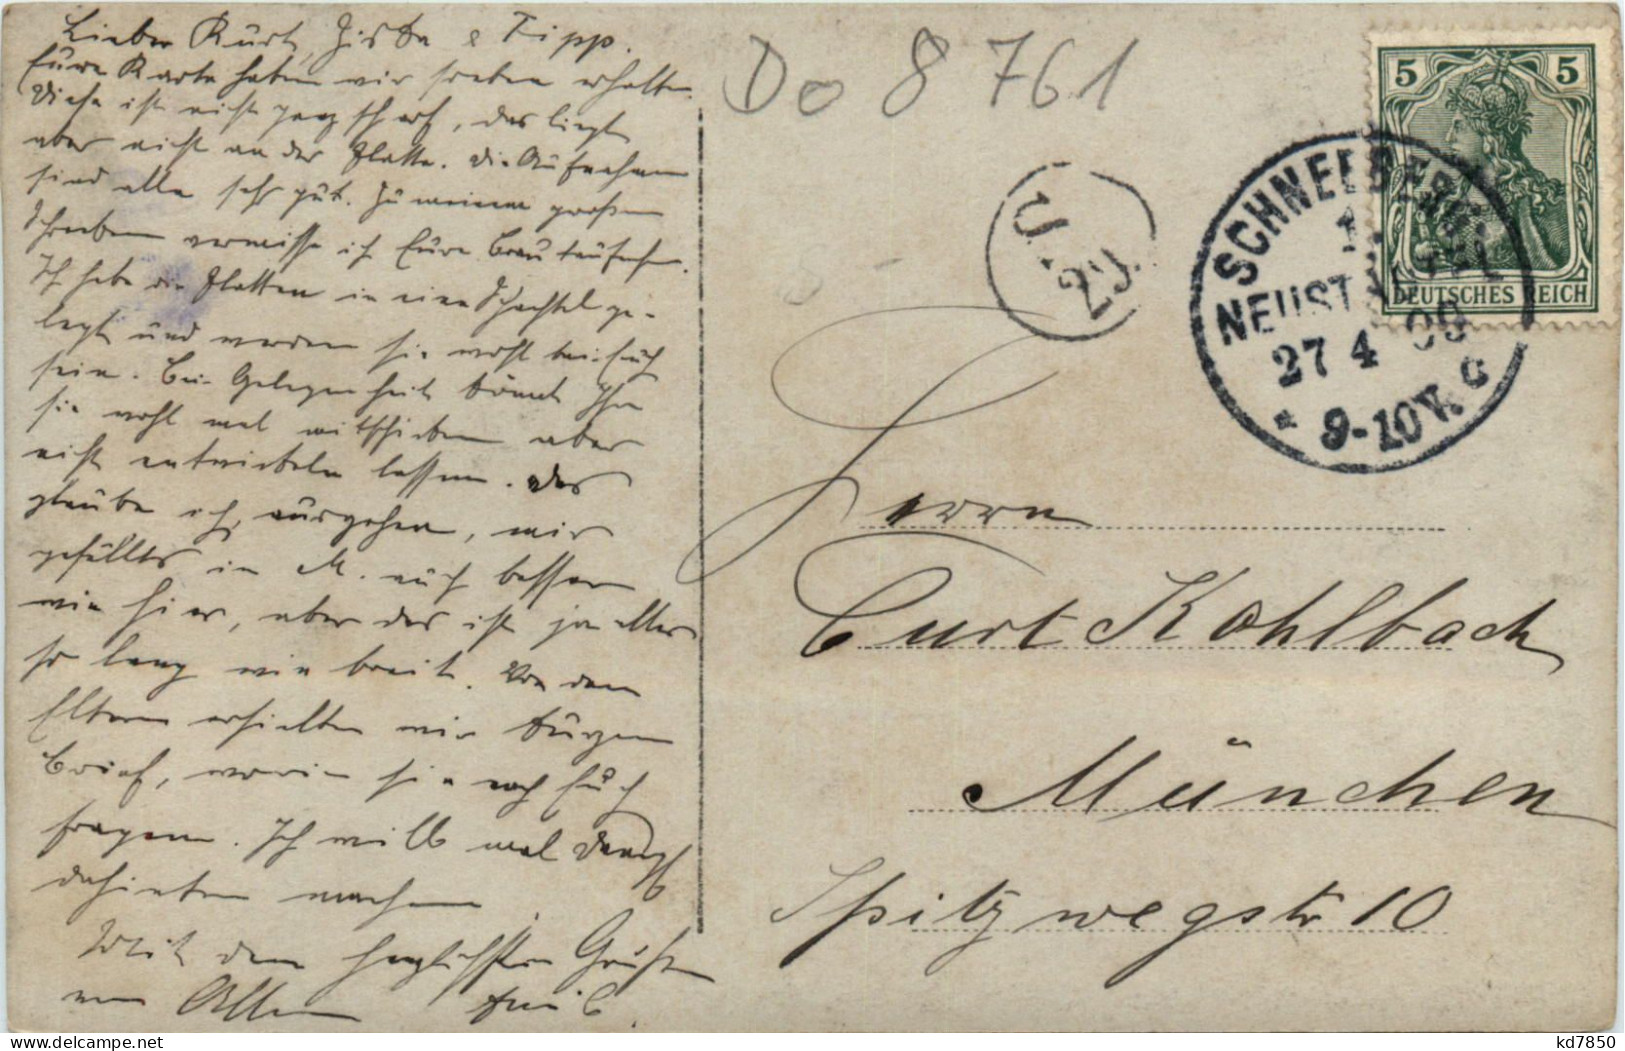 Lieber Kurt, Zirka & Tipp.
Eure Karte haben wir soeben erhalten.
Diese ist nicht ganz scharf, das liegt
aber nicht an der Platte. Die Aufnahmen
sind alle sehr gut. In meinem großen
Schreiben vermisse ich Eure
Ich habe die Platten in eine Schachtel ge-
legt und werden sie wohl bei Euch
sein. Bei Gelegenheit könnt Ihr
sie wohl mal mitschicken aber
nicht entwickeln lassen. Das
glaube ich, mir
gefällts in M. auch besser
wie hier, aber das ist ja alles
so lang wie breit. Von den
Eltern erhielten wir kurzen
Brief, worin sie nach Euch
fragen. Ich will mal Dampf
dahinter machen.
Mit den herzlichsten Grüßen
von Allen Emil.
Do 8 761
5 5
DEUTSCHES REICH
SCHNEEBERG
NEUSTÄDTEL
27 4 09
* 9-10 V. c
29.
Herrn
Curt Kohlbach
München
Spitzwegstr 10
kd7850